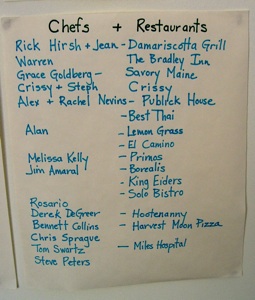 Chefs + Restaurants
Rick Hirsh + Jean - Damariscotta Grill
Warren The Bradley Inn
Grace Goldberg - Savory Maine
Crissy + Steph Crissy
Alex + Rachel Nevins - Publick House
- Best Thai
Alan - Lemon Grass
- El Camino
Melissa Kelly - Primos
Jim Amaral - Borealis
- King Eiders
- Solo Bistro
Rosario
Derek DeGreer - Hootenanny
Bennett Collins - Harvest Moon Pizza
Chris Sprague
Tom Swartz - Miles Hospital
Steve Peters